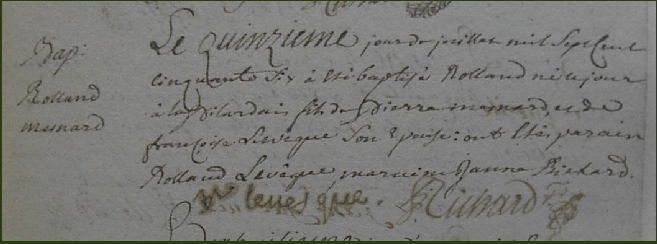 Bap:
Rolland
mesnard
Le quinzieme jour de juillet mil Sept Cent
cinquante Six à eté baptisé Rolland né ce jour
à la pilardais fils de pierre mesnard, et de
francoise Levêque Son epouse: ont Etés parain
Rolland Levêque maraine Janne Richard.
levesque. Richard